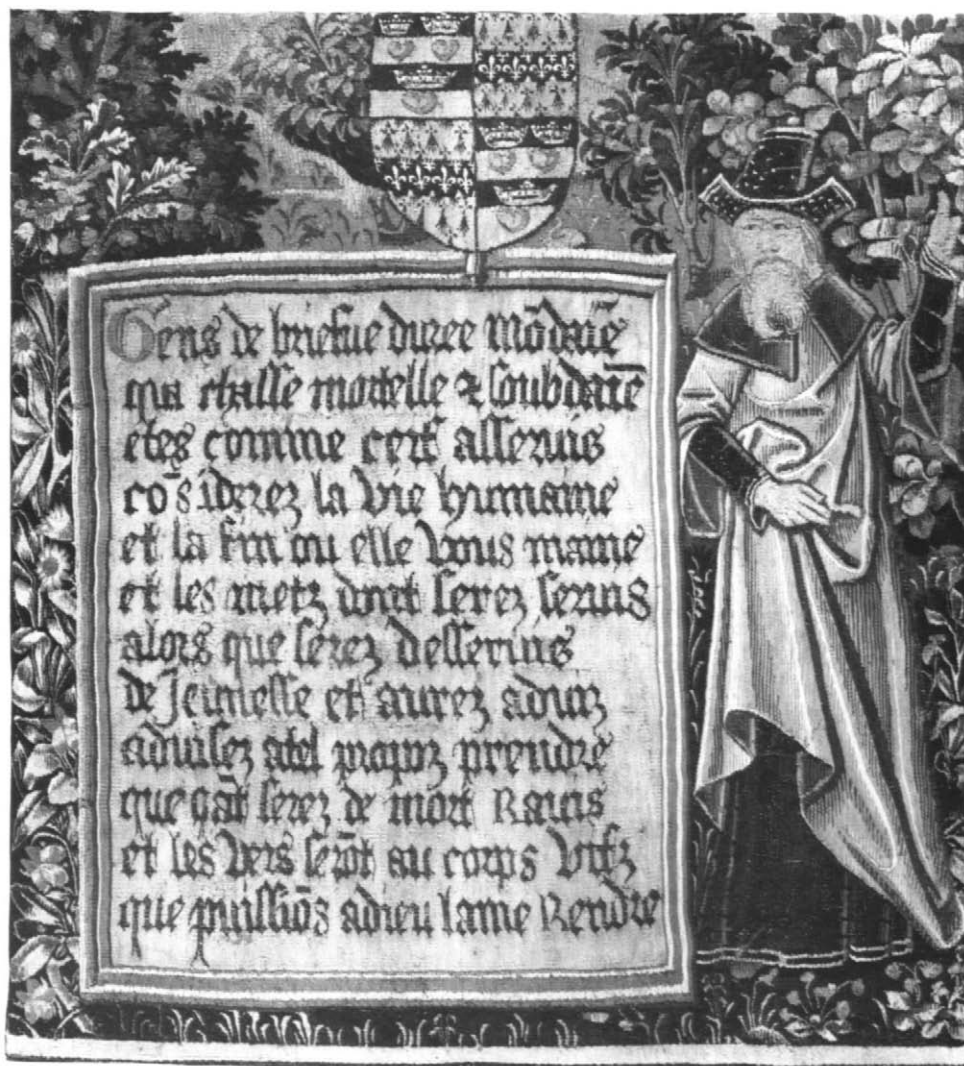 Gens de briefue duree mōdaiē
qua chasse mortelle & soubdaiē
etes comme cerfz asseruis
cōsiderez la vie humaine
et la fin ou elle vous maine
et les metz dont serez seruis
alors que serez desseruis
de Jeunesse et aurez aduiz
aduisez a tel propoz prendre
que qāt serez de mort Rauis
et les vers serōt au corps vifz
que puissiōs a dieu lame Rendre